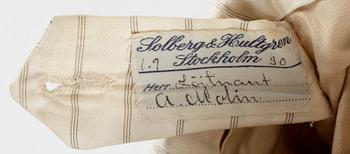 Solberg & Hultgren
1.9 Stockholm 90
Herr Löjtnant
A. Malin